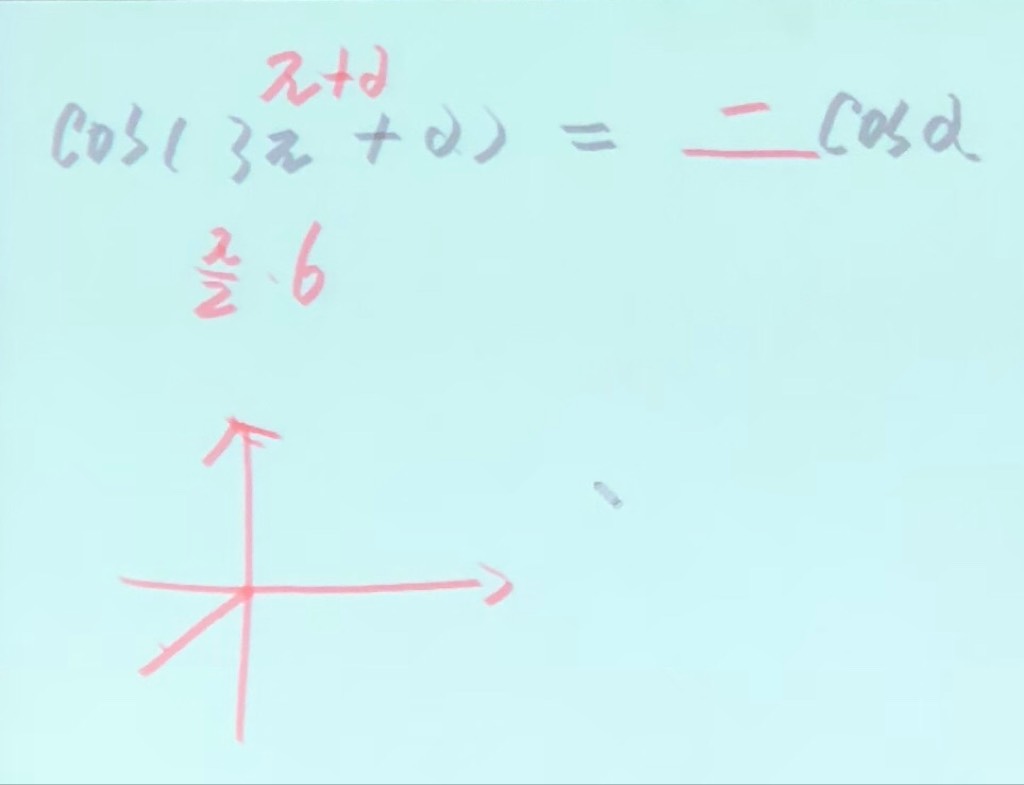 π+α
cos(3π+α) = — cosα
π/2 · 6